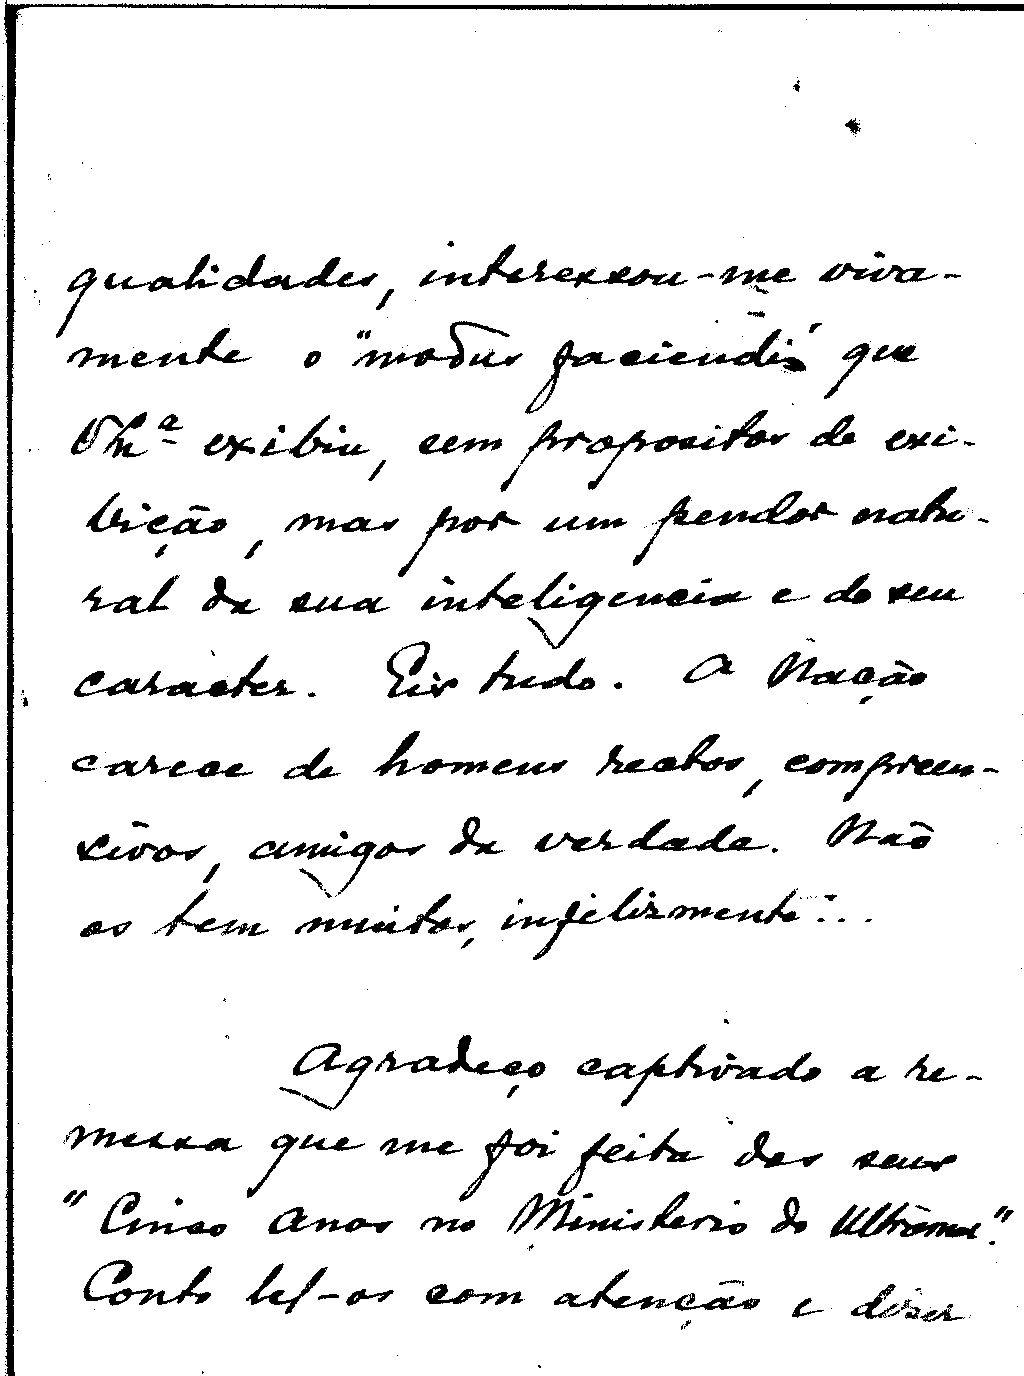 qualidades, interessou-me viva-
mente o "modus faciendi" que
V Exª exibiu, sem propositos de exi-
bição, mas por um pendor natu-
ral da sua inteligencia e do seu
caracter. Eis tudo. A Nação
carece de homens rectos, compreen-
sivos, amigos da verdade. Não
os tem muitos, infelizmente...
Agradeço captivado a re-
messa que me foi feita dos seus
"Cinco Anos no Ministerio do Ultramar".
Conto lel-os com atenção e dizer